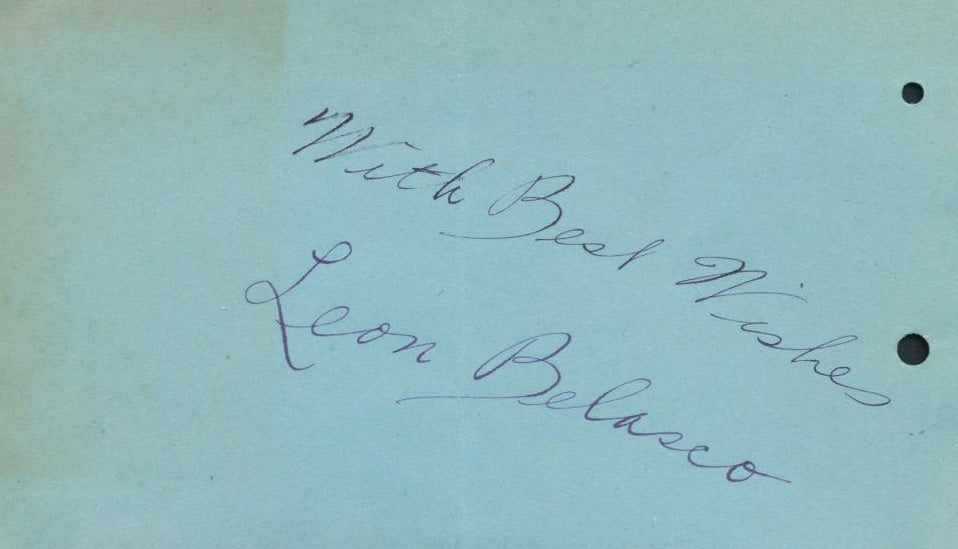 With Best Wishes
Leon Belasco